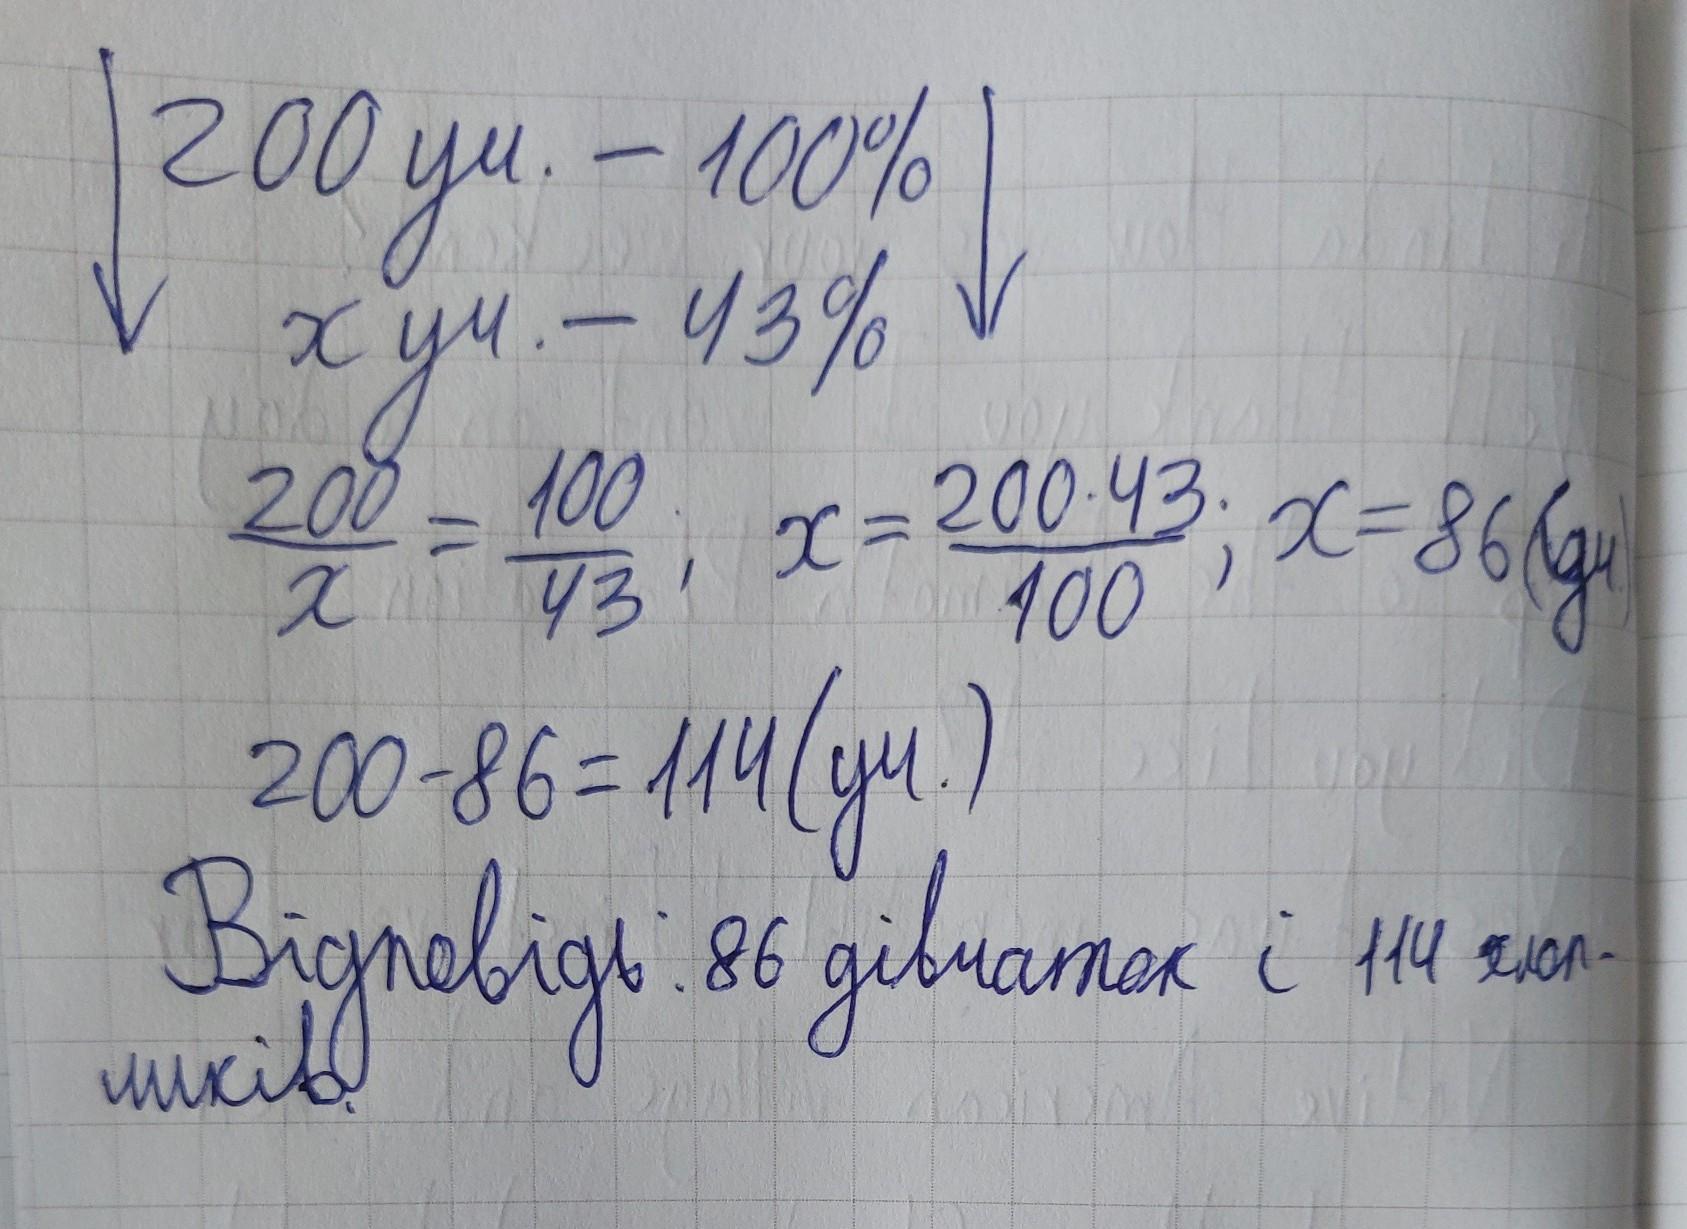 200 уч. – 100%
x уч. – 43%
200/x = 100/43; x = 200·43/100; x = 86 (дч.)
200-86=114(уч.)
Відповідь: 86 дівчаток і 114 хлоп-
чиків.